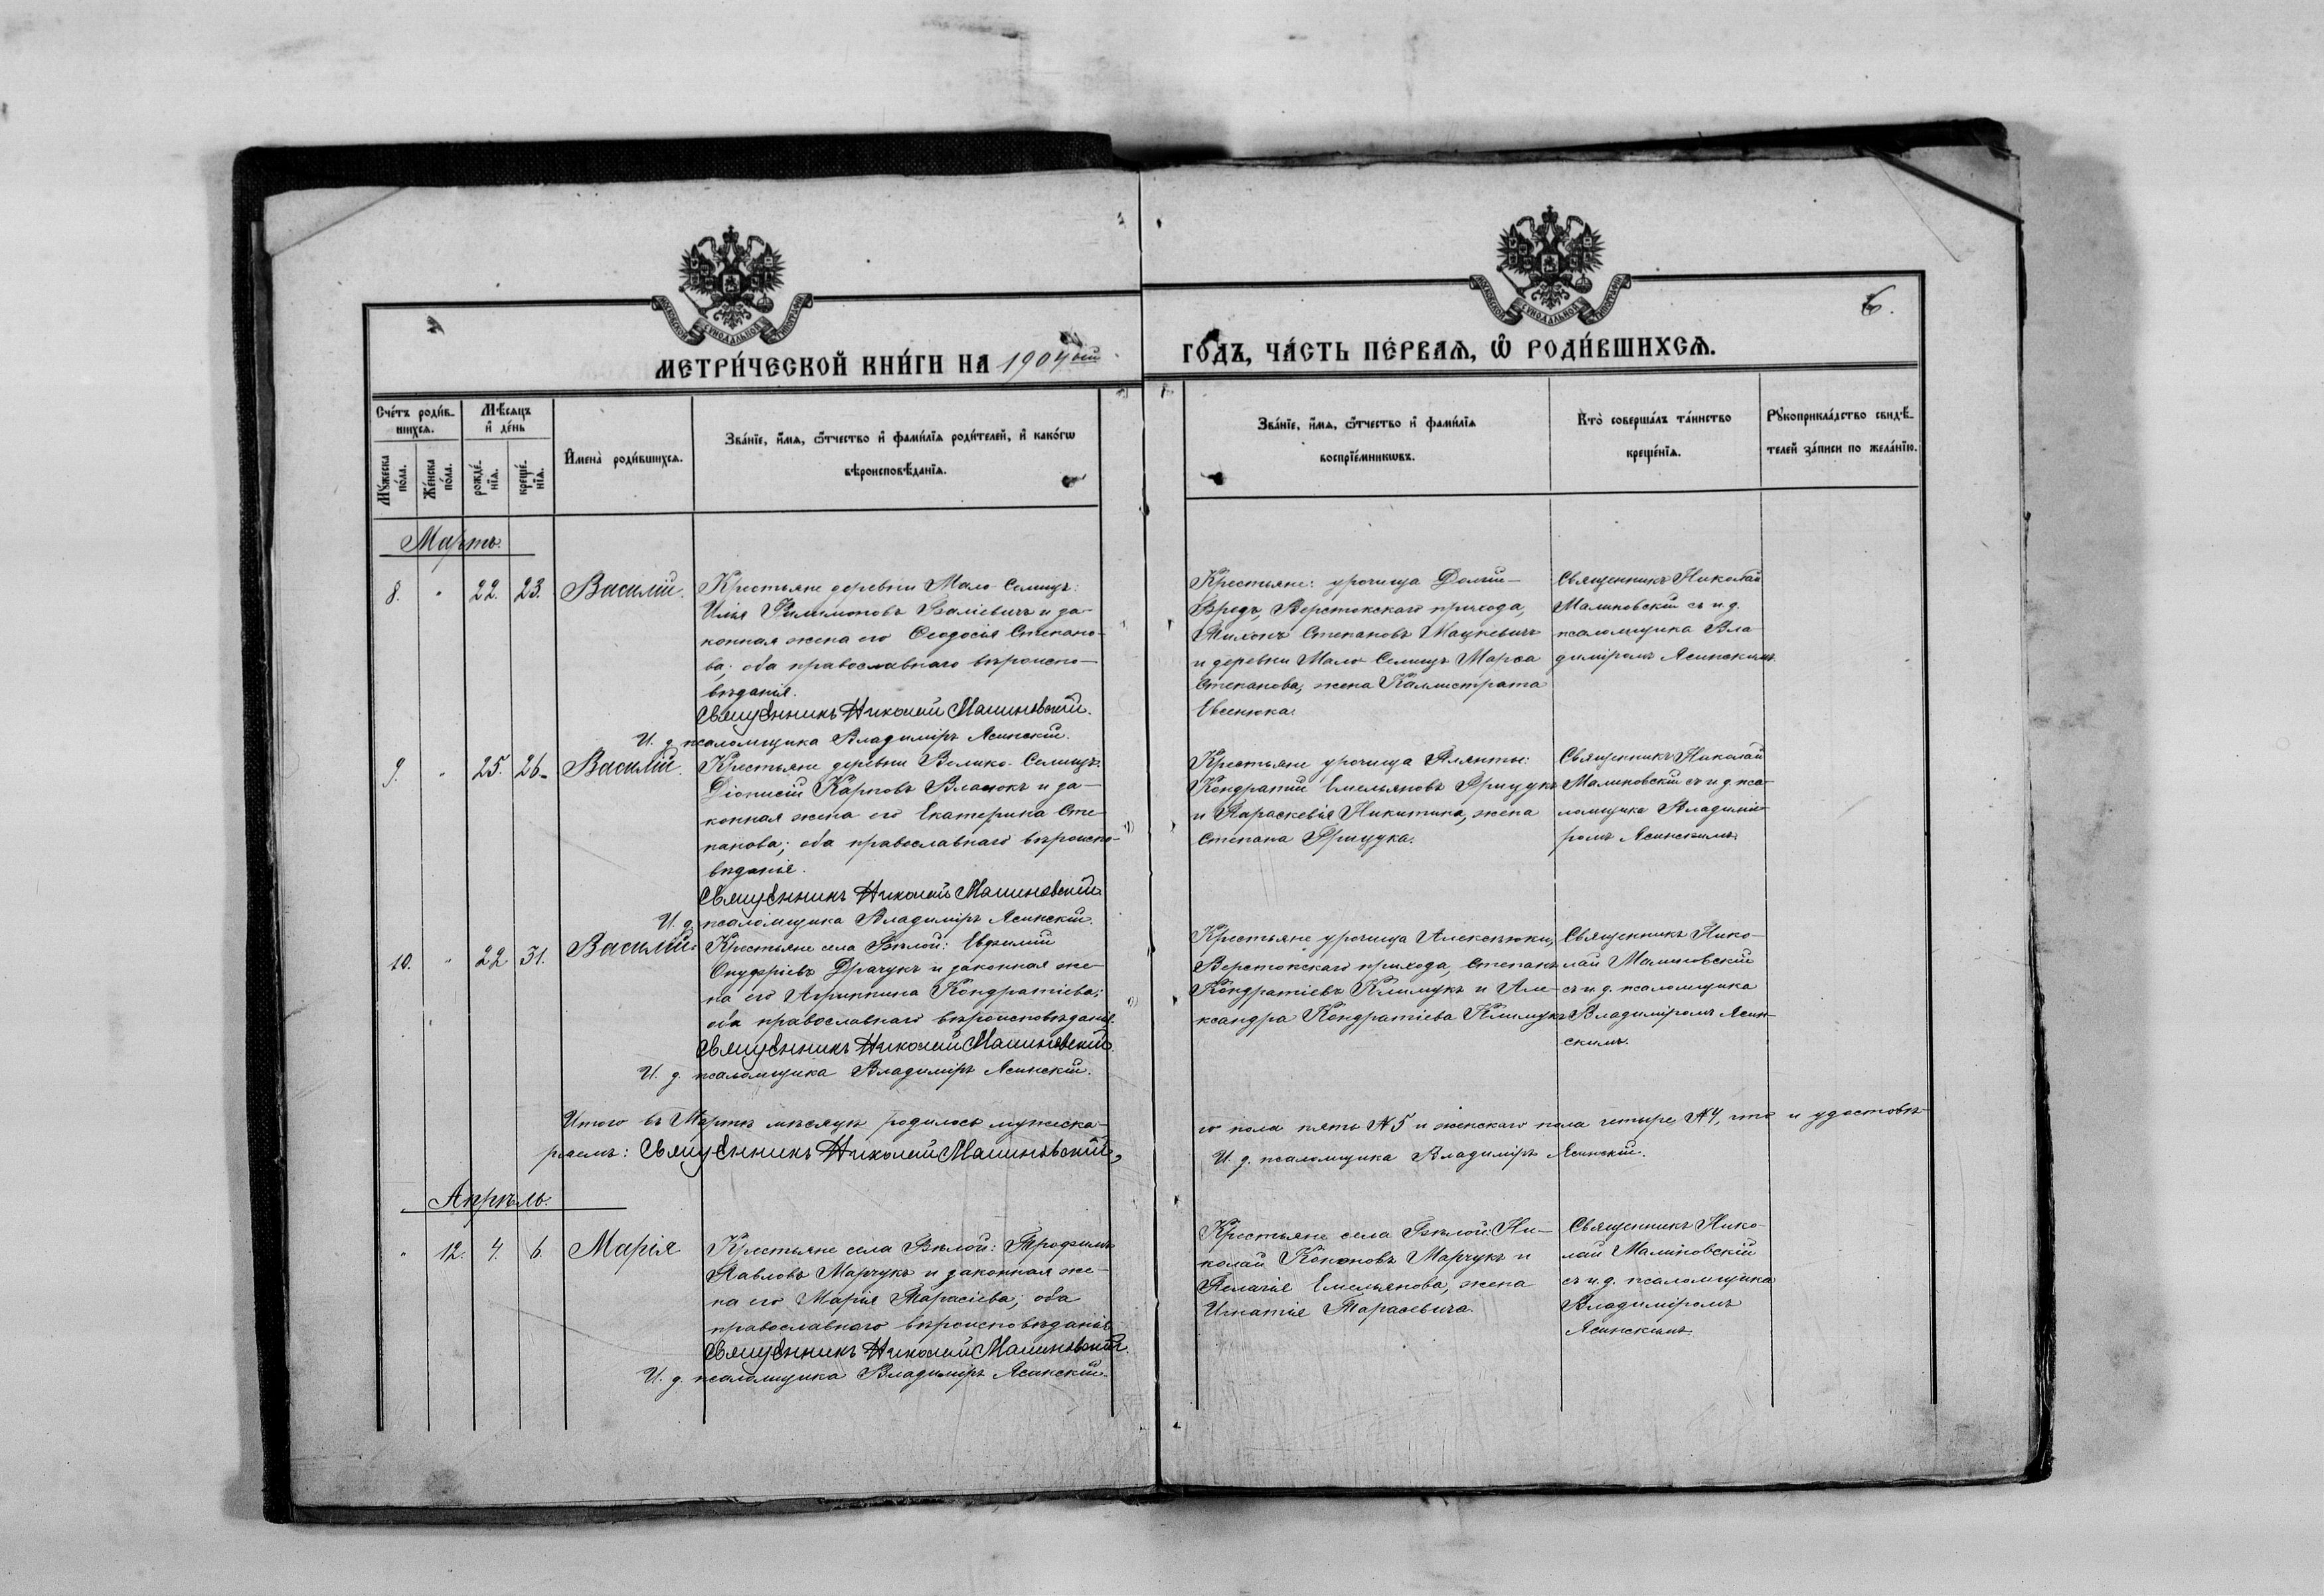 МЕТРИ́ЧЕСКОЙ КНИ́ГИ НА 1904ый
ГО́ДЪ, ЧА́СТЬ ПЕ́РВАѦ, Ѡ҆ РОДИ́ВШИХСѦ.
6.
Сче́тъ роди́в-
шихсѧ.
Мѣ́сѧцъ
и҆ де́нь
Мꙋ́жеска
по́ла.
Же́нска
по́ла.
рожде́-
нїѧ.
креще́-
нїѧ.
И҆мена̀ роди́вшихсѧ.
Зва́нїе, и҆́мѧ, ѻ҆́тчество и҆ фами́лїѧ роди́телей, и҆ како́гѡ
вѣроисповѣ́данїѧ.
Зва́нїе, и҆́мѧ, ѻ҆́тчество и҆ фами́лїѧ
воспрїе́мникѡвъ.
Кто̀ соверша́лъ та́инство
креще́нїѧ.
Рꙋкоприкла́дство свидѣ́-
телей за́писи по жела́нїю.
Мартъ.
8. " 22. 23. Василій.
Крестьяне деревни Мало-Селищъ:
Илья Филимоновъ Базіевичъ и за-
конная жена его Ѳеодосія Степано-
ва; оба православнаго вѣроиспо-
вѣданія.
Священникъ Николай Малиновскій.
И. д. псаломщика Владиміръ Ясинскій.
Крестьяне: урочища Долгій-
Бродъ, Верстокскаго прихода,
Тихонъ Степановъ Мацкевичъ
и деревни Мало-Селищъ Марѳа
Степанова, жена Каллистрата
Евсенюка.
Священникъ Николай
Малиновскій съ и. д.
псаломщика Вла
диміромъ Ясинскимъ.
9. " 25. 26. Василій.
Крестьяне деревни Велико-Селищъ:
Діонисій Карповъ Власюкъ и за-
конная жена его Екатерина Сте-
панова; оба православнаго вѣроиспо-
вѣданія.
Священникъ Николай Малиновскій
И. д. псаломщика Владиміръ Ясинскій.
Крестьяне урочища Плянты:
Кондратій Емельяновъ Грицукъ
и Параскевія Никитина, жена
Степана Грицука.
Священникъ Николай
Малиновскій съ и. д. пса-
ломщика Владимі-
ромъ Ясинскимъ.
10. " 22 31. Василій.
Крестьяне села Бѣлой: Евфимій
Онуфріевъ Драчукъ и законная же-
на его Агриппина Кондратіева;
оба православнаго вѣроисповѣданія.
Священникъ Николай Малиновскій.
И. д. псаломщика Владиміръ Ясинскій.
Крестьяне урочища Алексѣюки,
Верстокскаго прихода, Степанъ
Кондратіевъ Климукъ и Але-
ксандра Кондратіева Климукъ
Священникъ Нико-
лай Малиновскій
съ и. д. псаломщика
Владиміромъ Ясин-
скимъ.
Итого въ Мартѣ мѣсяцѣ родилось мужеска-
го пола пять № 5 и женскаго пола четыре № 4, что и удостовѣ-
ряемъ: Священникъ Николай Малиновскій,
И. д. псаломщика Владиміръ Ясинскій.
Апрѣль.
" 12. 4. 6. Марія
Крестьяне села Бѣлой: Трофимъ
Павловъ Марчукъ и законная же-
на его Марія Тарасіева; оба
православнаго вѣроисповѣданія
Священникъ Николай Малиновскій.
И. д. псаломщика Владиміръ Ясинскій.
Крестьяне села Бѣлой: Ни-
колай Кононовъ Марчукъ и
Пелагія Емельянова, жена
Игнатія Тарасевича.
Священникъ Нико-
лай Малиновскій
съ и. д. псаломщика
Владиміромъ
Ясинскимъ.